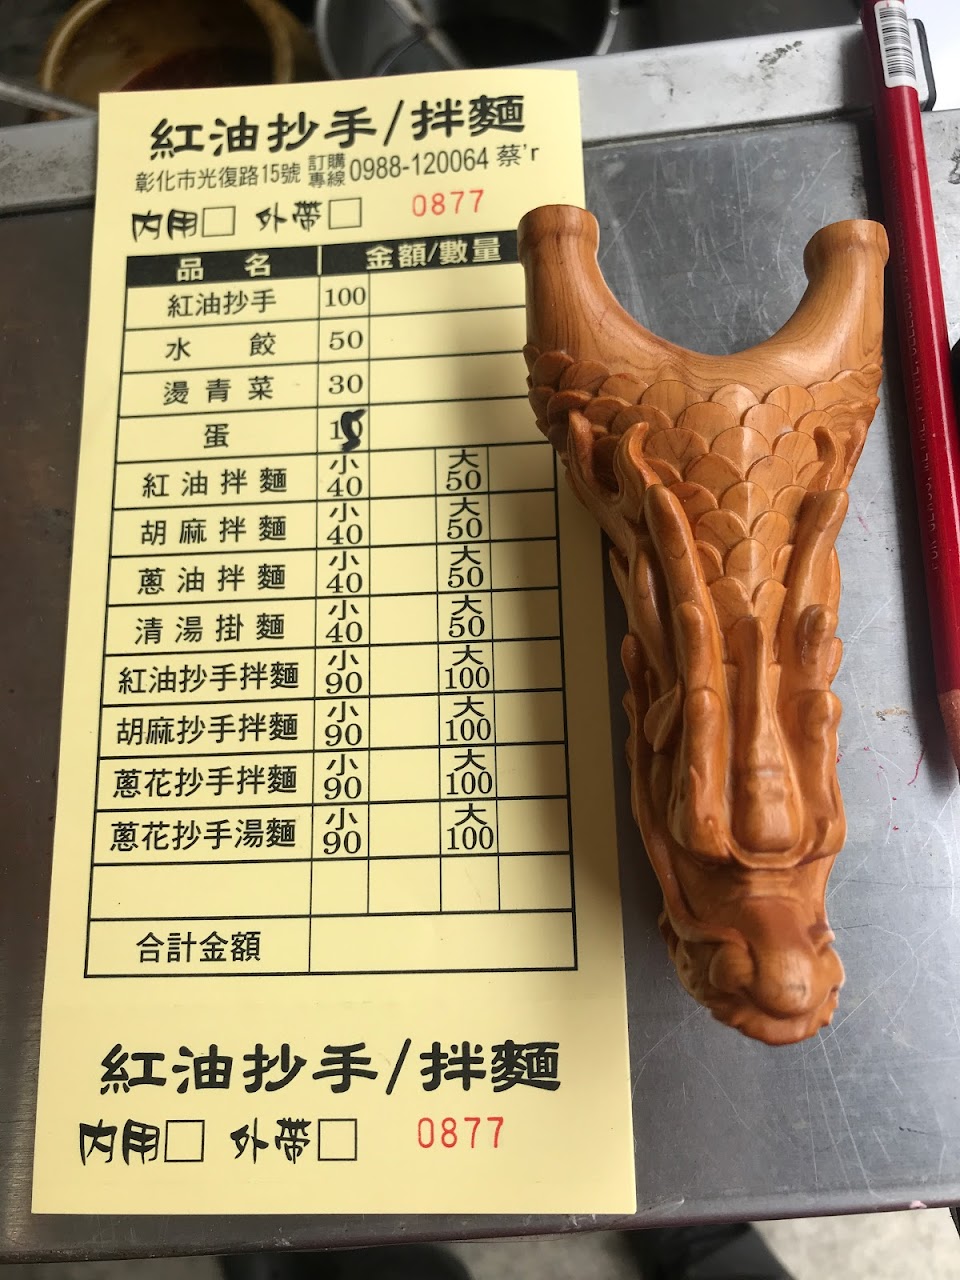 紅油抄手/拌麵
彰化市光復路15號 訂購專線 0988-120064 蔡'r
內用□ 外帶□ 0877
品 名 金額/數量
紅油抄手 100
水 餃 50
燙青菜 30
蛋 15
紅油拌麵 小40 大50
胡麻拌麵 小40 大50
蔥油拌麵 小40 大50
清湯掛麵 小40 大50
紅油抄手拌麵 小90 大100
胡麻抄手拌麵 小90 大100
蔥花抄手拌麵 小90 大100
蔥花抄手湯麵 小90 大100
合計金額
紅油抄手/拌麵
內用□ 外帶□ 0877